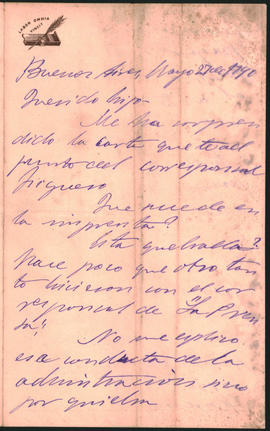 LABOR OMNIA
VINCIT
Buenos Aires Mayo 27 de 1890
Querido hijo
Me ha sorpren
dido la carta que
del corresponsal
Figueroa
Que sucede en
la imprenta?
Esta quebrada?
hace poco que otro tan
to hicieron con el cor
responsal de "La Pren
sa".
No me esplico
esa conducta de la
administracion sino
por quiebra